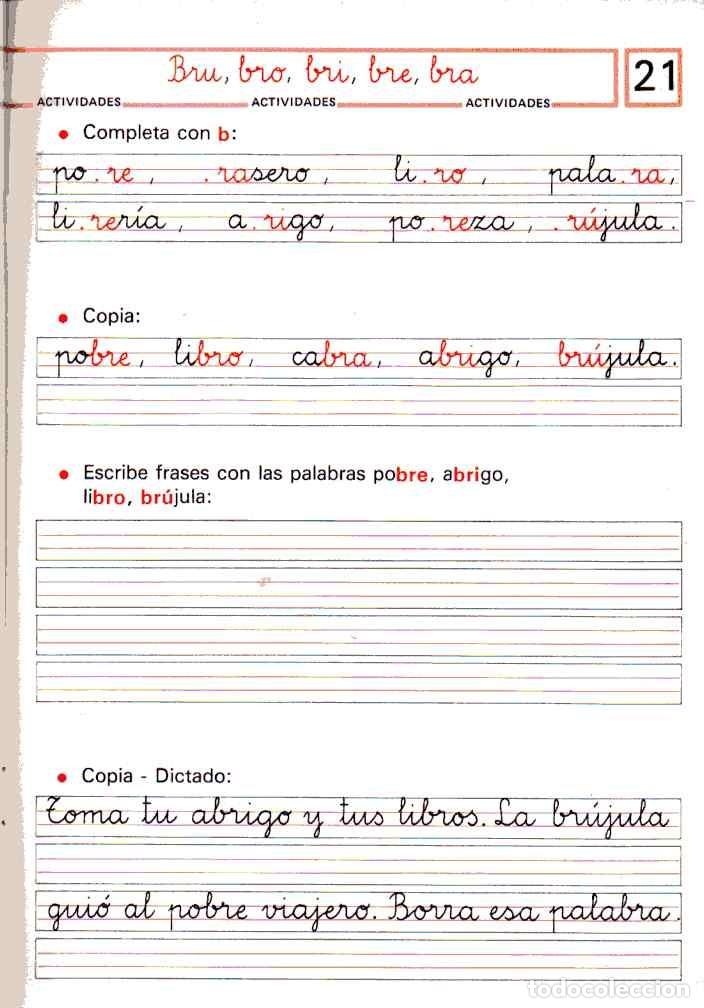 Bru, bro, bri, bre, bra
21
ACTIVIDADES ACTIVIDADES ACTIVIDADES
• Completa con b:
po.re, .rasero, li.ro, pala.ra,
li.rería, a.rigo, po.reza, .rújula.
• Copia:
pobre, libro, cabra, abrigo, brújula.
• Escribe frases con las palabras pobre, abrigo,
libro, brújula:
• Copia - Dictado:
Toma tu abrigo y tus libros. La brújula
guió al pobre viajero. Borra esa palabra.
todocoleccion